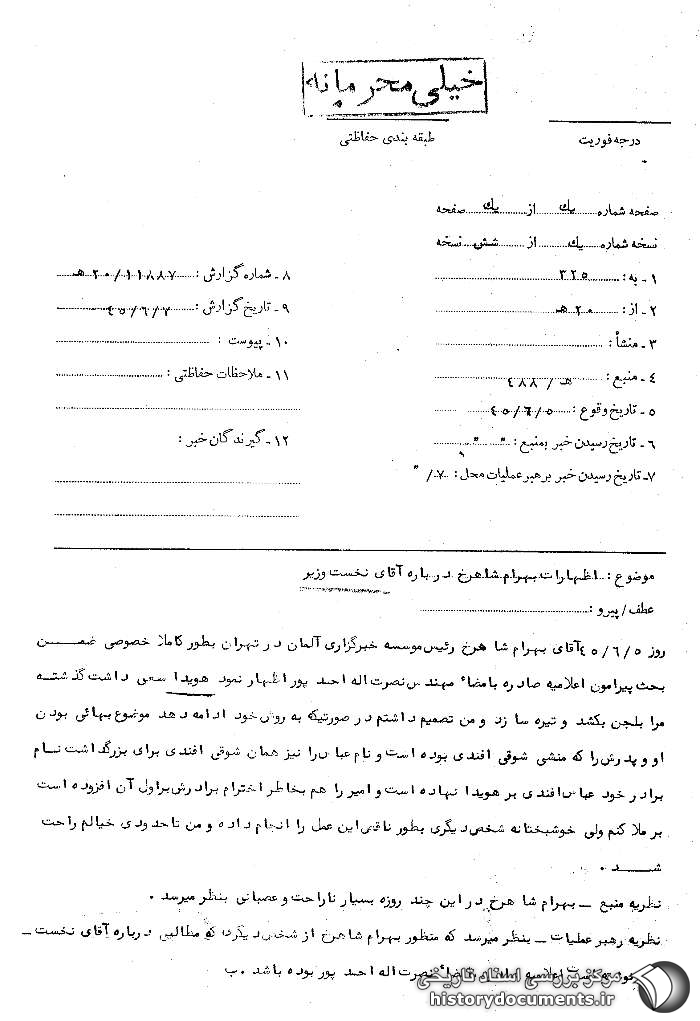 خیلی محرمانه
طبقه بندی حفاظتی
درجه فوریت
صفحه شماره یک از یک صفحه
نسخه شماره یک از شش نسخه
۱ـ به : ۳۲۵
۲ـ از : ۲۰ هـ
۳ـ منشأ :
۴ـ منبع : ۴۸۸ / هـ
۵ـ تاریخ وقوع : ۴۵/۶/۵
۶ـ تاریخ رسیدن خبر بمنبع : " "
۷ـ تاریخ رسیدن خبر برهبر عملیات محل : ۷/ "
۸ـ شماره گزارش : ۲۰/۱۱۸۸۷ هـ
۹ـ تاریخ گزارش : ۴۵/۶/۷
۱۰ـ پیوست :
۱۱ـ ملاحظات حفاظتی :
۱۲ـ گیرندگان خبر :
موضوع : اظهارات بهرام شاهرخ درباره آقای نخست وزیر
عطف/پیرو :
روز ۴۵/۶/۵ آقای بهرام شاهرخ رئیس موسسه خبرگزاری آلمان در تهران بطور کاملا خصوصی ضمن
بحث پیرامون اعلامیه صادره بامضاء مهندس نصرت اله احمد پور اظهار نمود هویدا سعی داشت گذشته
مرا بلجن بکشد و تیره سازد و من تصمیم داشتم در صورتیکه به روش خود ادامه دهد موضوع بهائی بودن
او و پدرش را که منشی شوقی افندی بوده است و نام عباس را نیز همان شوقی افندی برای بزرگداشت نام
برادر خود عباس افندی بر هویدا نهاده است و امیر را هم بخاطر احترام برادرش براول آن افزوده است
بر ملا کنم ولی خوشبختانه شخص دیگری بطور ناقص این عمل را انجام داده و من تا حدودی خیالم راحت
شد .
نظریه منبع ـ بهرام شاهرخ در این چند روزه بسیار ناراحت و عصبانی بنظر میرسد .
نظریه رهبر عملیات ـ بنظر میرسد که منظور بهرام شاهرخ از شخص دیگری که مطالبی درباره آقای نخست ـ
اعلامیه نصرت اله احمد پور بوده باشد . ب
مرکز بررسی اسناد تاریخی
historydocuments.ir